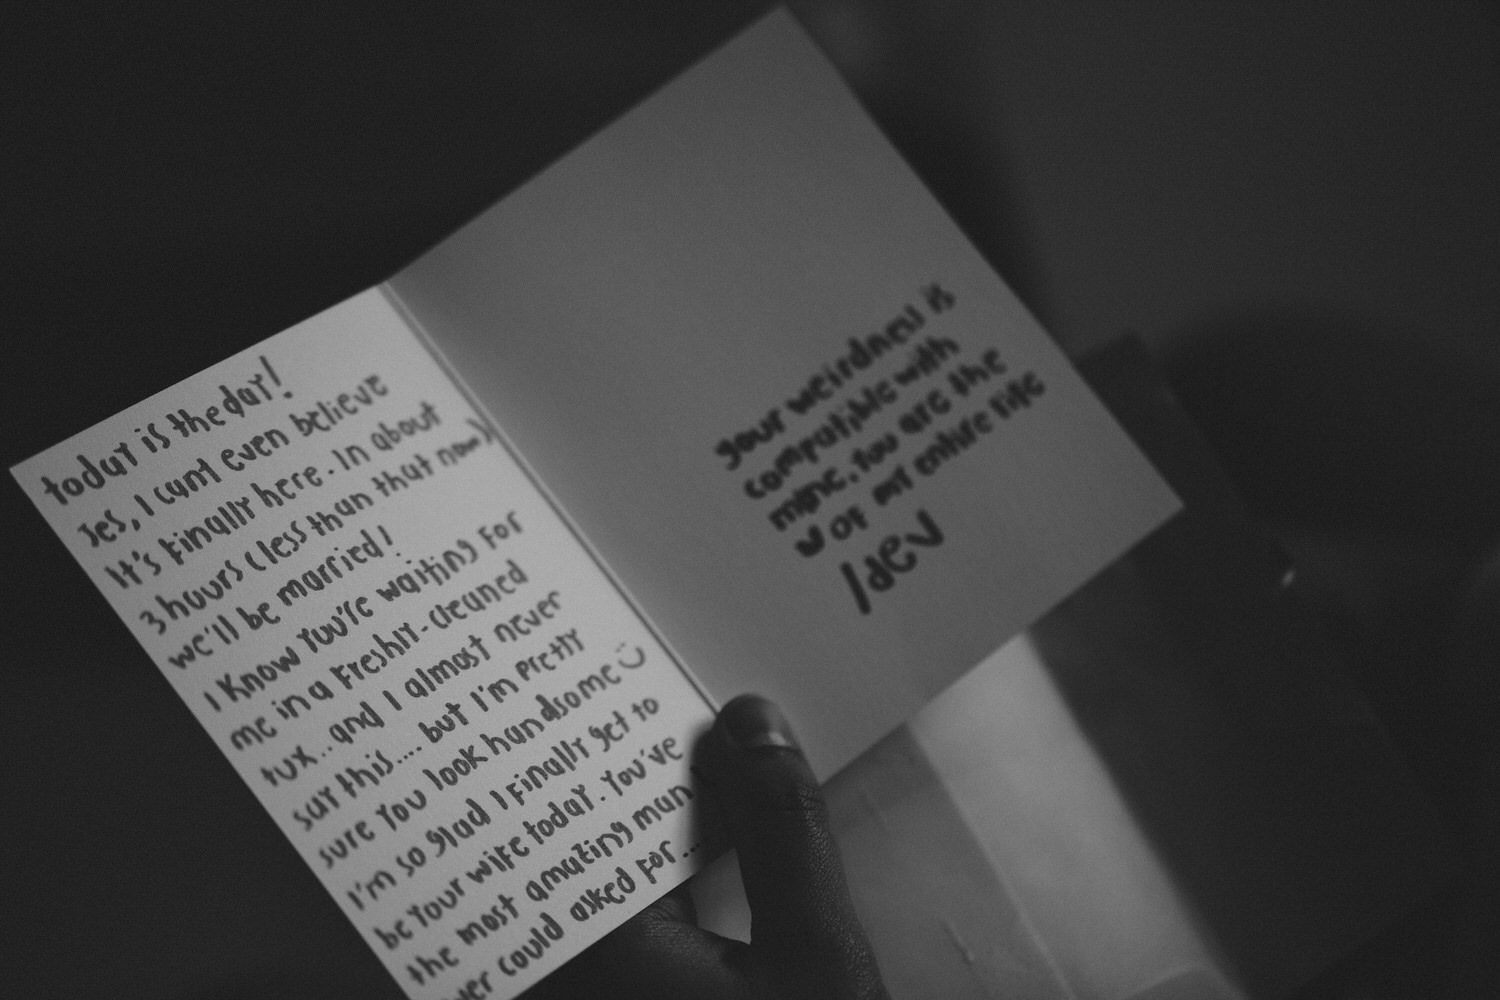 today is the day!
Jes, I can't even believe
It's finally here. In about
3 hours (less than that now)
we'll be married!
I know you're waiting for
me in a freshly-cleaned
tux.. and I almost never
say this.... but I'm pretty
sure you look handsome
I'm so glad I finally get to
be your wife today. You've
the most amazing man
could asked for ...
your weirdness is
compatible with
mine. You are the
♥ of my entire life
/dev